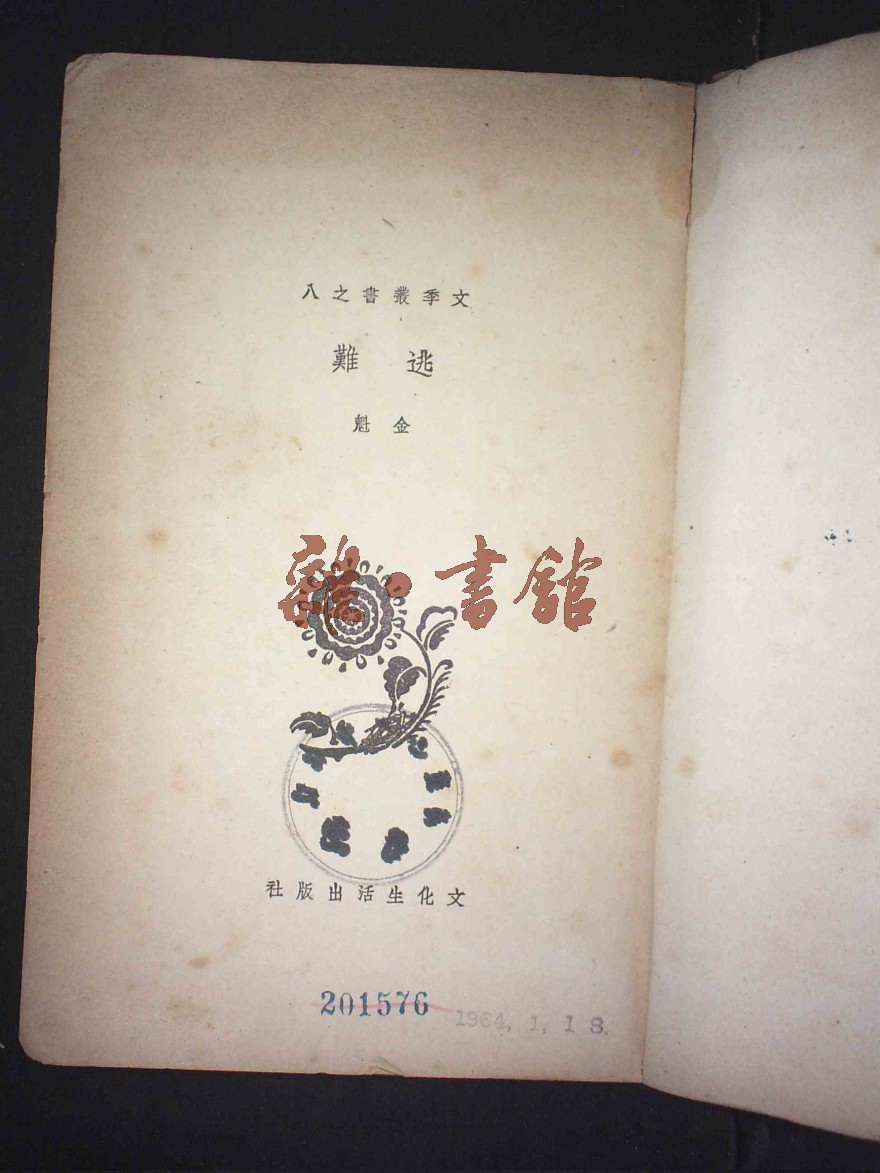 文季叢書之八
逃難
金魁
雜·書館
文化生活出版社
201576
1964, 1, 1 8.